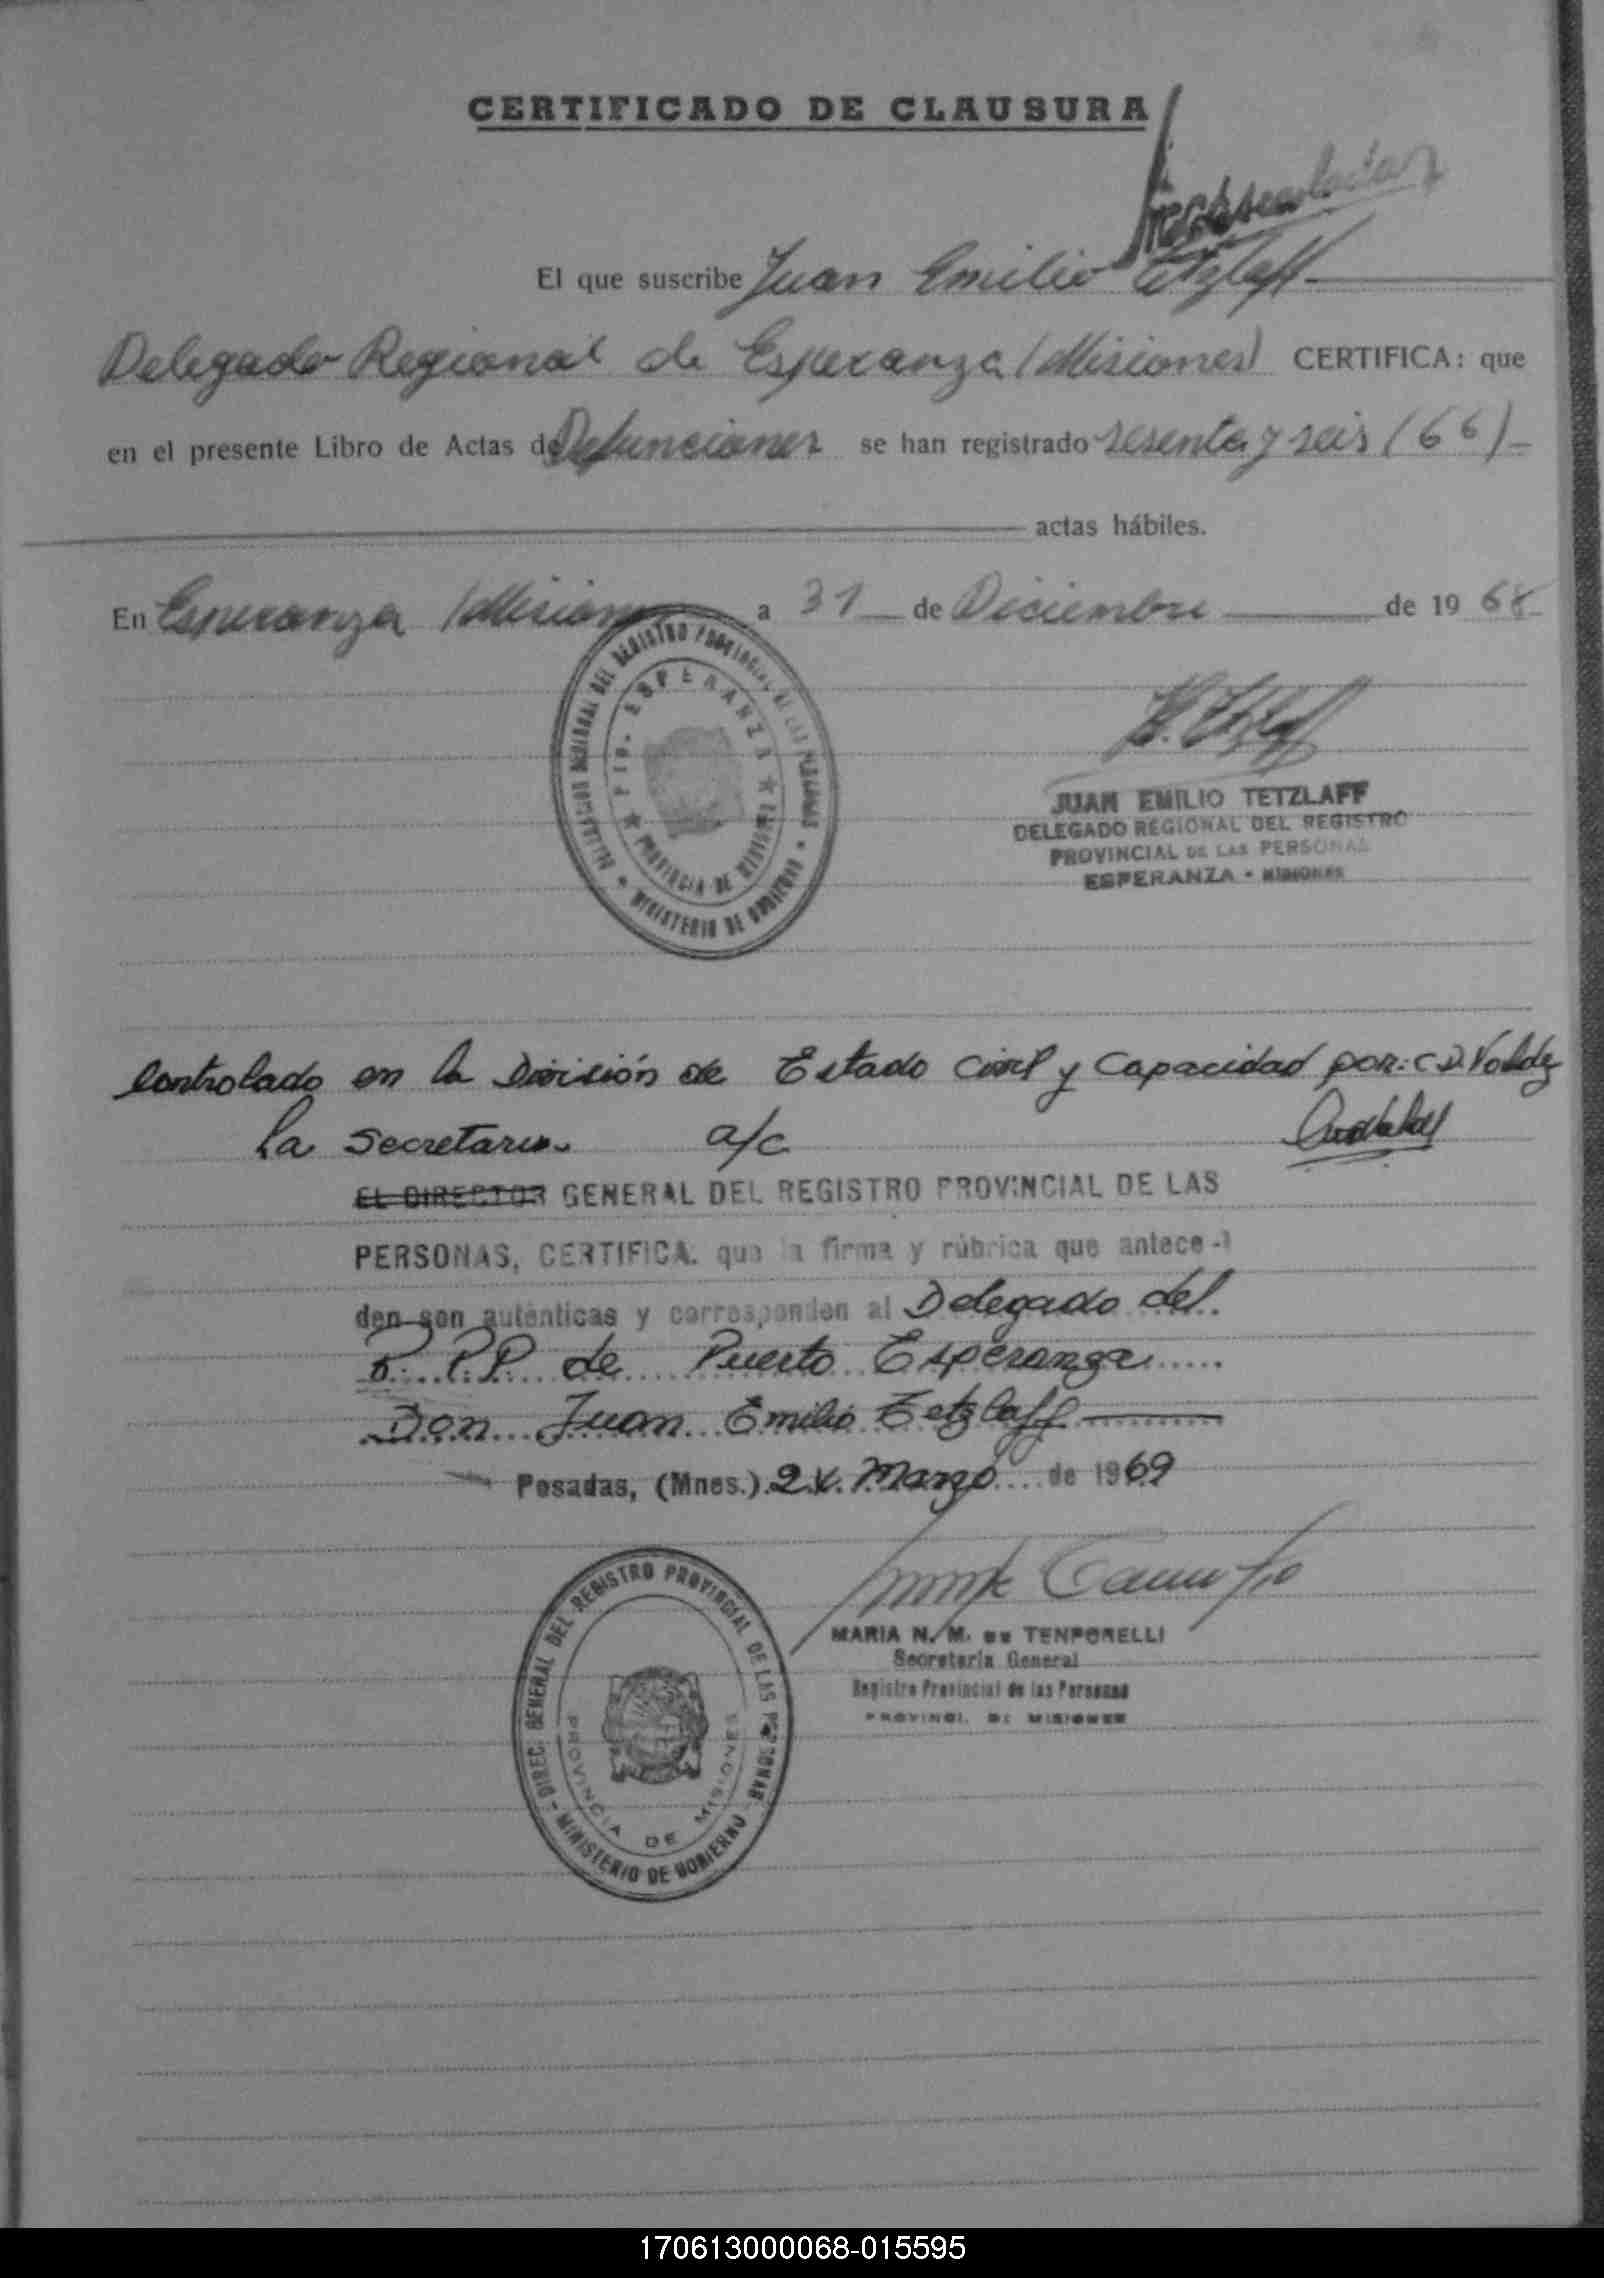 CERTIFICADO DE CLAUSURA
El que suscribe Juan Emilio Tetzlaff
Delegado Regional de Esperanza (Misiones) CERTIFICA: que
en el presente Libro de Actas de Defunciones se han registrado sesenta y seis (66)
actas hábiles.
En Esperanza (Misiones a 31 de Diciembre de 1968
DIRECCION GENERAL DEL REGISTRO PROVINCIAL DE LAS PERSONAS * MINISTERIO DE GOBIERNO *
Pto. ESPERANZA * PROVINCIA DE MISIONES *
JUAN EMILIO TETZLAFF
DELEGADO REGIONAL DEL REGISTRO
PROVINCIAL DE LAS PERSONAS
ESPERANZA - MISIONES
Controlado en la División de Estado Civil y Capacidad por: C.D. Valdez
La Secretaria a/c
EL DIRECTOR GENERAL DEL REGISTRO PROVINCIAL DE LAS
PERSONAS, CERTIFICA. que la firma y rúbrica que antece-
den son auténticas y corresponden al Delegado del
R. P.P. de Puerto Esperanza
Don Juan Emilio Tetzlaff
Posadas, (Mnes.) Marzo de 1969
MARIA N. M. DE TEMPORELLI
Secretaria General
Registro Provincial de las Personas
PROVINCI. DE MISIONES
DIREC. GENERAL DEL REGISTRO PROVINCIAL DE LAS PERSONAS - MINISTERIO DE GOBIERNO -
PROVINCIA DE MISIONES
170613000068-015595